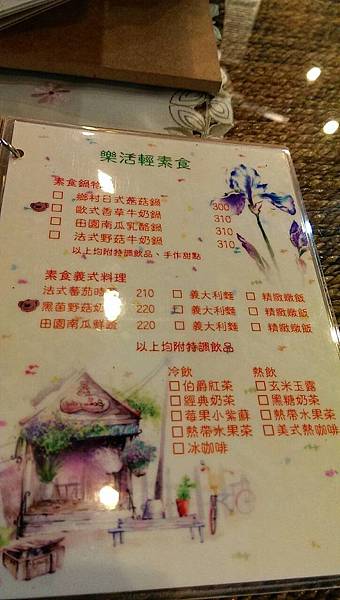 樂活輕素食
素食鍋物
□ 鄉村日式蔬菇鍋 300
歐式香草牛奶鍋 310
□ 田園南瓜乳酪鍋 310
□ 法式野菇牛奶鍋 310
以上均附特調飲品、手作甜點
素食義式料理
法式蕃茄時 210 □ 義大利麵 □ 精緻燉飯
黑菌野菇奶 220 □ 義大利麵 □ 精緻燉飯
田園南瓜鮮蔬 220 □ 義大利麵 □ 精緻燉飯
以上均附特調飲品
冷飲 熱飲
□伯爵紅茶 □玄米玉露
□經典奶茶 □黑糖奶茶
□莓果小紫蘇 □熱帶水果茶
□熱帶水果茶 □美式熱咖啡
□冰咖啡